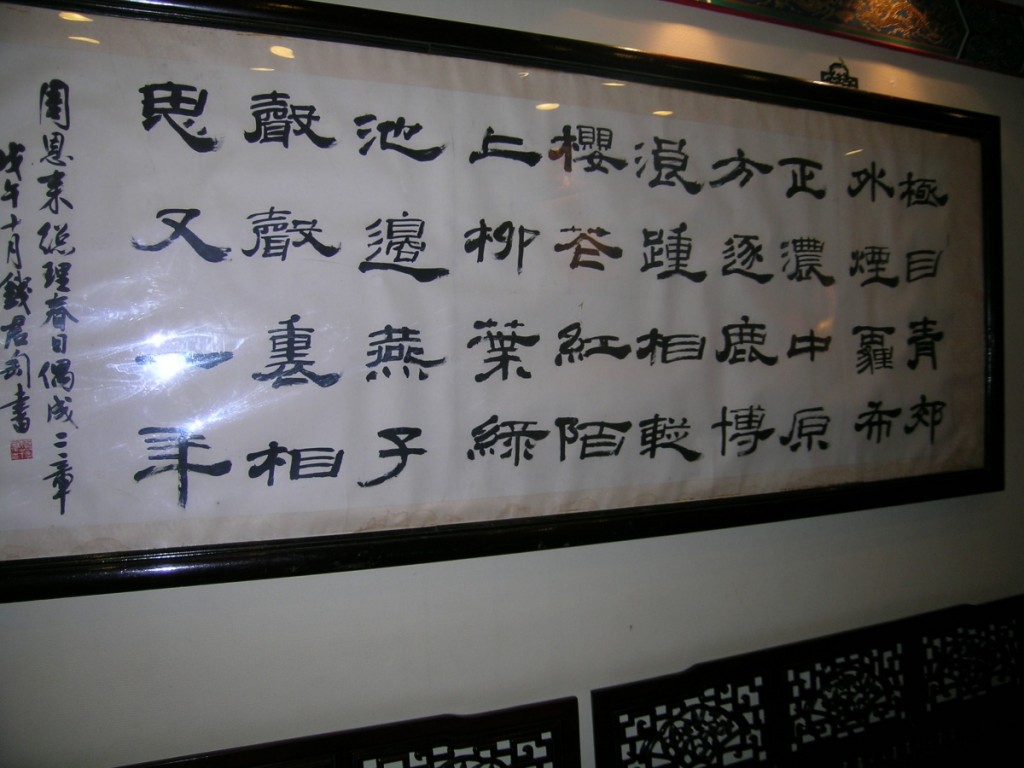 極目青郊
外煙霾布
正濃中原
方逐鹿博
浪踵相蹤
櫻花紅陌
上柳葉綠
池邊燕子
聲聲裏相
思又一年
周恩来總理春日偶成二章
戊午十月錢君匋書